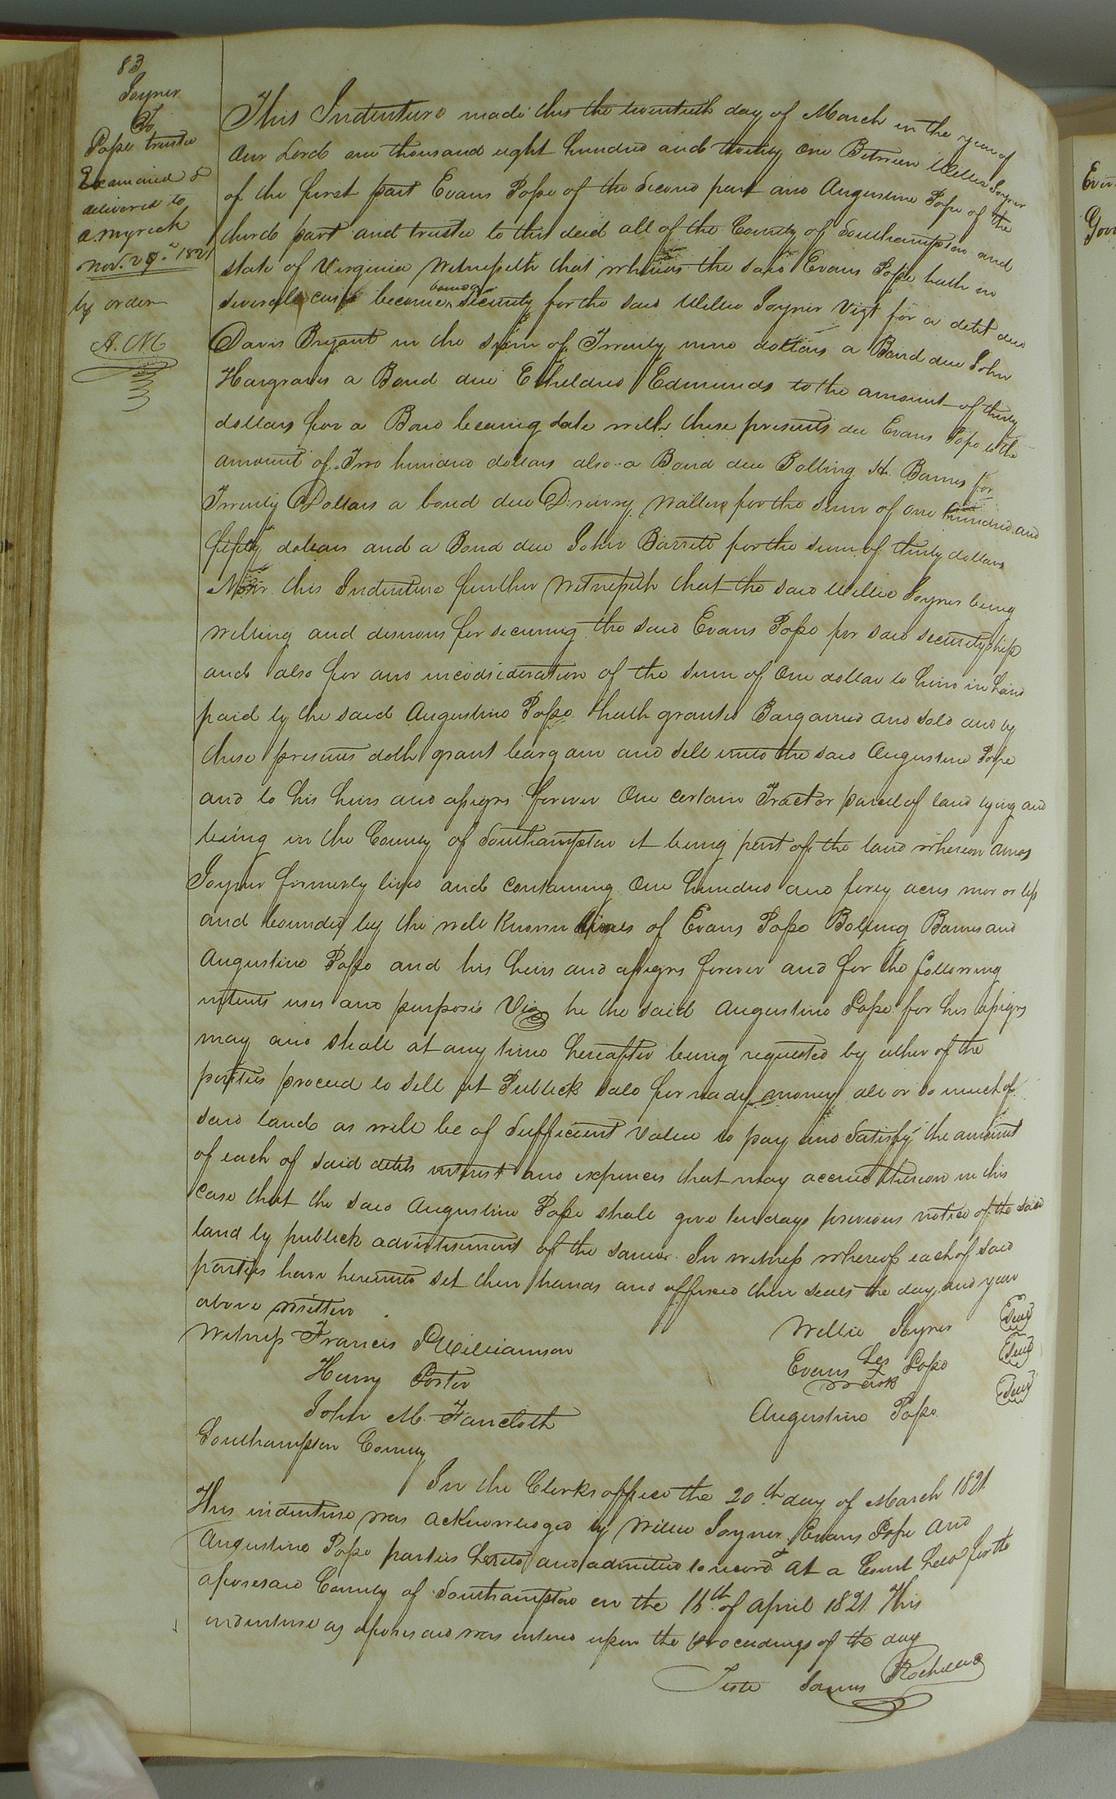 83
Joyner
To
Pope trustee
Examined &
delivered to
A. Myrick
Nov. 29th 1821
by order
A. M
This Indenture made this the twentieth day of March in the year of
Our Lord one thousand eight hundred and twenty one Between Willie Joyner
of the first part Evans Pope of the Second part and Augustine Pope of the
third part and trustee to this deed all of the County of Southampton and
state of Virginia Witnesseth that whereas the said Evans Pope hath in
several cases become security for the said Willie Joyner Vizt for a debt due
Davis Bryant in the sum of Twenty nine dollars a Bond due John
Hargraves a Bond due Etheldred Edmunds to the amount of thirty
dollars for a Bond bearing date with these presents due Evans Pope to the
amount of Two hundred dollars also a Bond due Bolling H. Barnes for
Twenty Dollars a bond due Drewry Waller for the sum of one hundred and
fifty dollars and a Bond due John Barrett for the sum of thirty dollars
Now this Indenture further Witnesseth that the said Willie Joyner being
willing and desirous for securing the said Evans Pope for said securityship
and also for and inconsideration of the sum of One dollar to him in hand
paid by the said Augustine Pope hath granted Bargained and sold and by
these presents doth grant bargain and sell unto the said Augustine Pope
and to his heirs and assigns forever One certain Tract or parcel of land lying and
being in the County of Southampton it being part of the land whereon Amos
Joyner formerly lived and containing One hundred and forty acres mor or less
and bounded by the well known lines of Evans Pope Bolling Barnes and
Augustine Pope and his heirs and assigns forever and for the following
intents uses and purposes Viz he the said Augustine Pope for his assigns
may and shall at any time hereafter being requested by either of the
parties proceed to sell at Publick sale for ready money all or so much of
said land as will be of sufficient value to pay and satisfy the amount
of each of said debts interest and expences that may accrue thereon in this
case that the said Augustine Pope shall give ten days previous notice of the said
land by publick advertisement of the same. In witness whereof each of said
parties have hereunto set their hands and affixed their seals the day and year
above written
Witness Francis Williamson Willie Joyner Seal
Henry Porter Evans his mark Pope Seal
John M. Faircloth Augustine Pope Seal
Southampton County
In the Clerks office the 20th day of March 1821
This indenture was acknowledged by Willie Joyner Evans Pope and
Augustine Pope parties hereto and admitted to record & At a Court held for the
aforesaid County of Southampton on the 16th of April 1821 This
indenture as aforesaid was entered upon the proceedings of the day
Teste James Rochelle